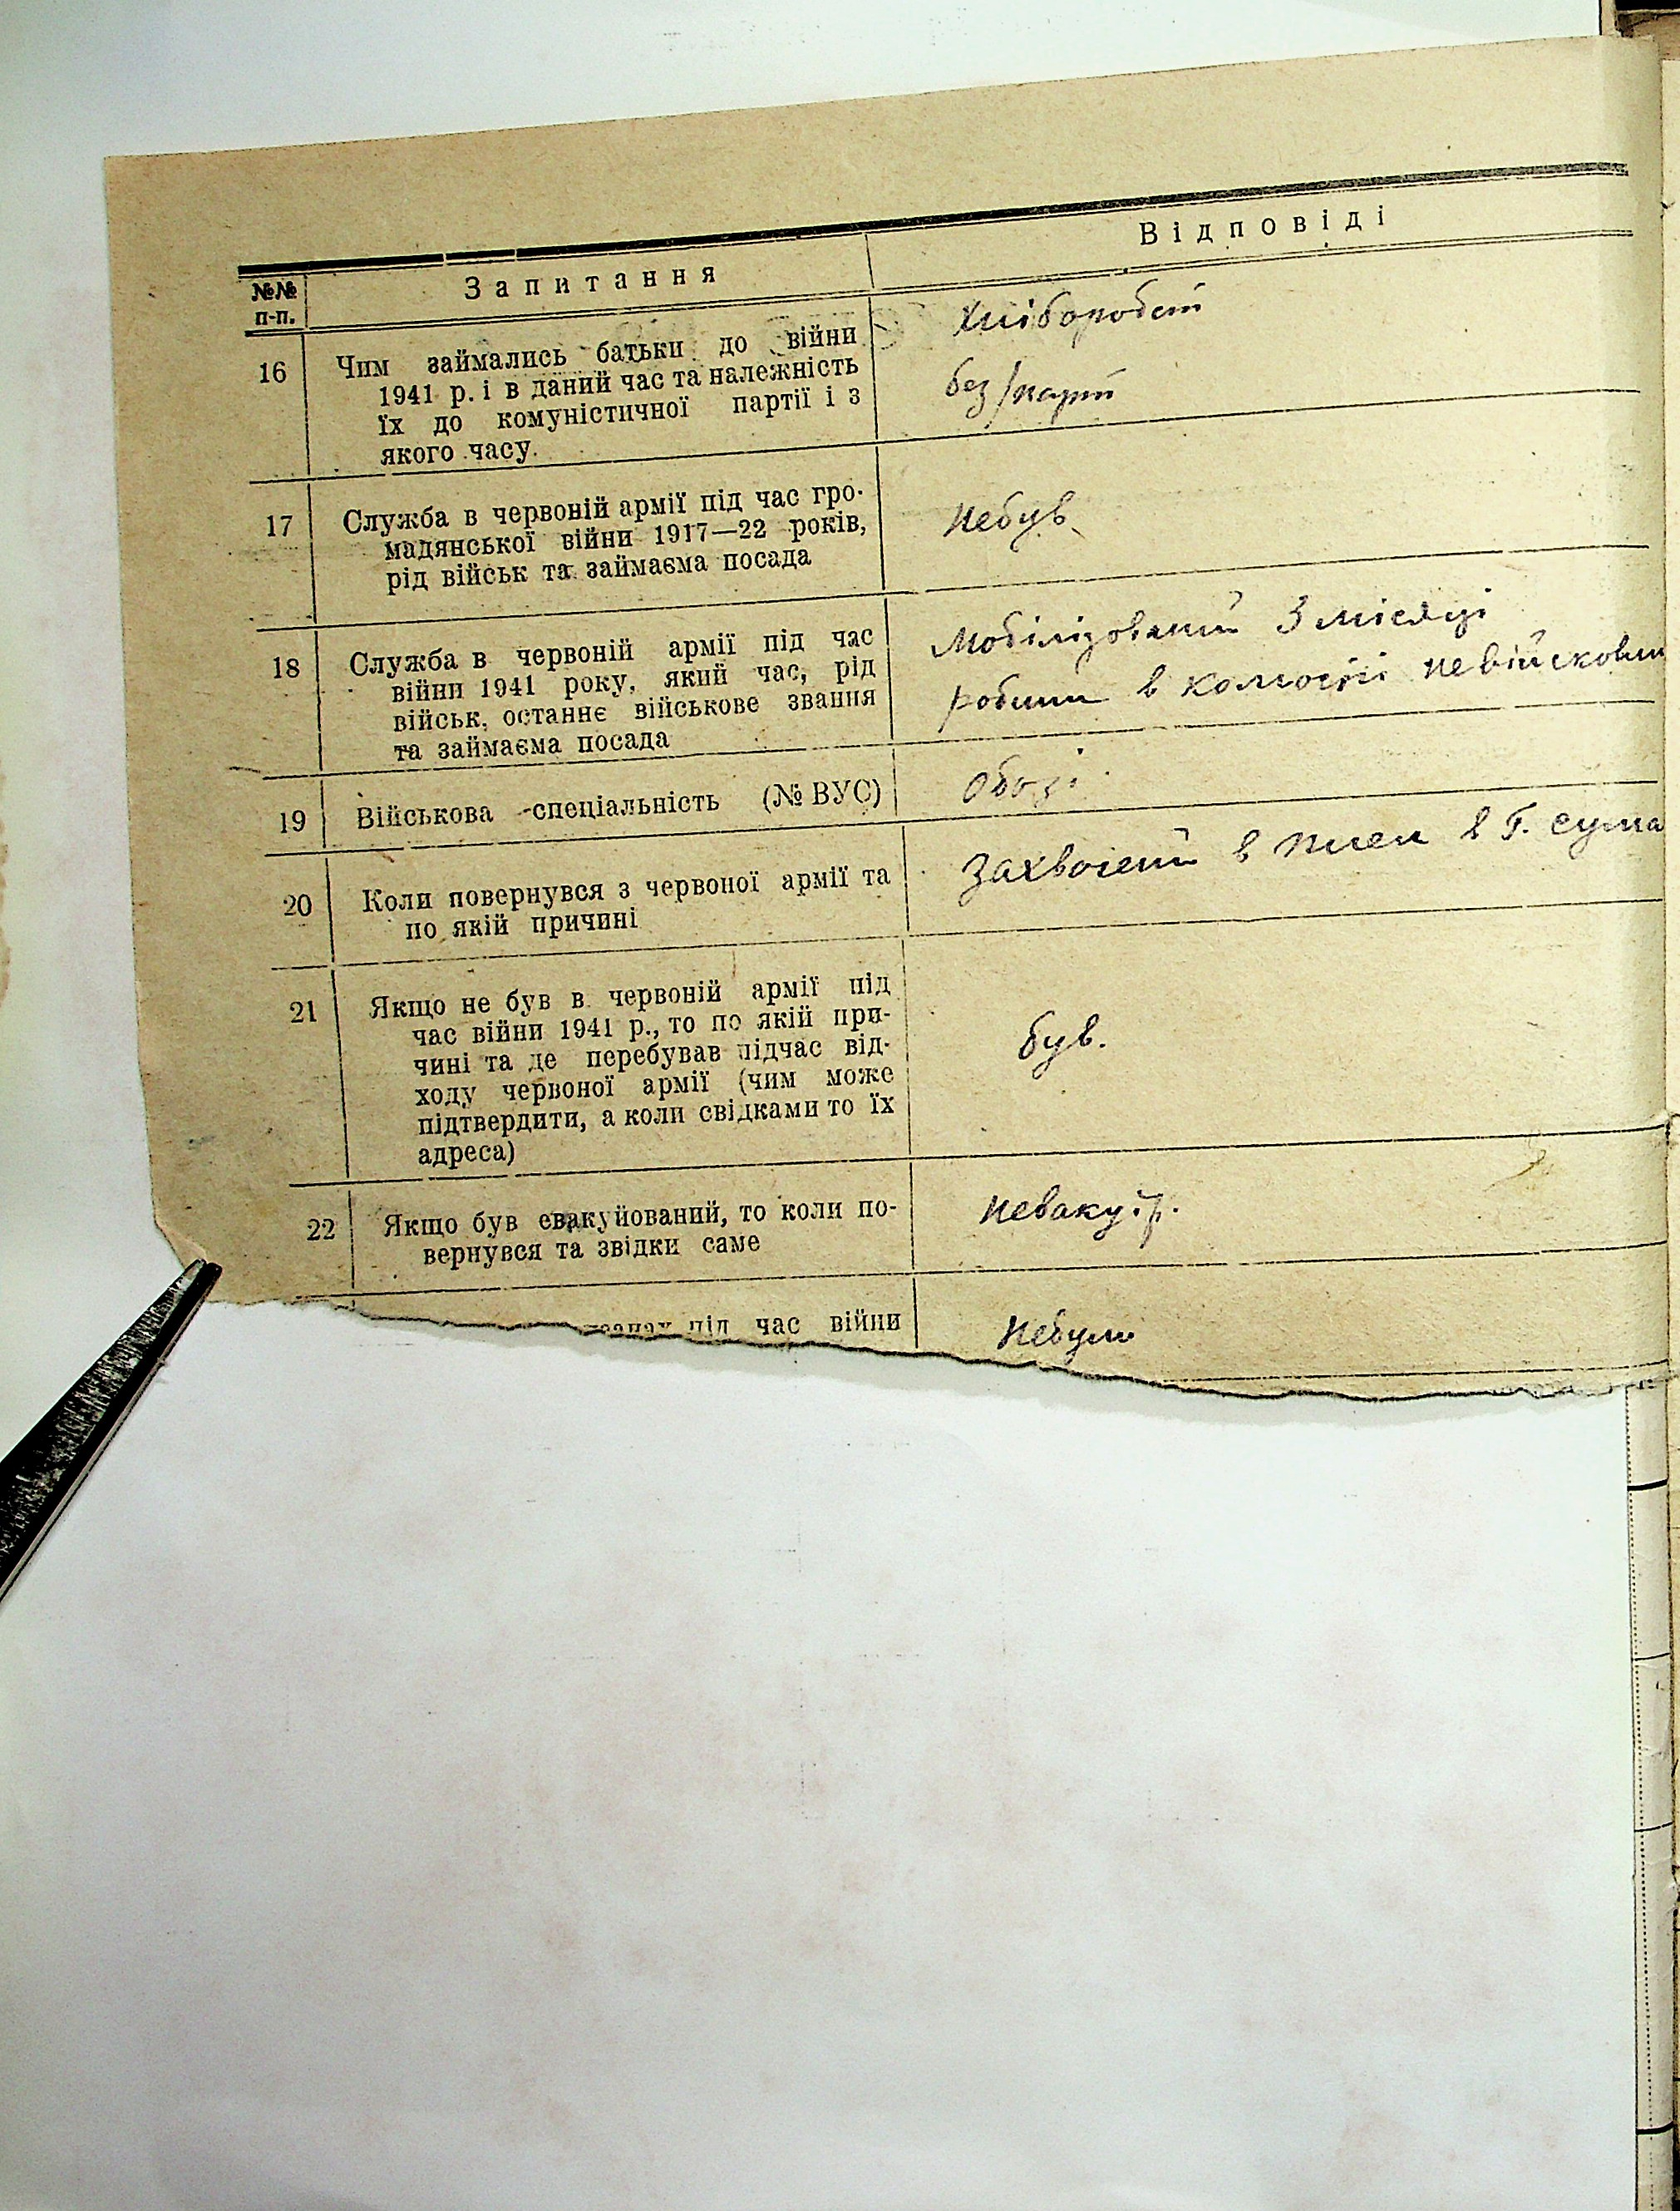 №№ п-п.
Запитання
Відповіді
16
Чим займались батьки до війни
1941 р. і в даний час та належність
їх до комуністичної партії і з
якого часу.
Хлібороби
без/парт
17
Служба в червоній армії під час гро-
мадянської війни 1917—22 років,
рід військ та займаєма посада
Небув
18
Служба в червоній армії під час
війни 1941 року, який час, рід
військ, останнє військове звання
та займаєма посада
Мобілізований 3 місяці
в невійськовим
19
Військова спеціальність (№ ВУС)
Обозі
20
Коли повернувся з червоної армії та
по якій причині
в плен в Г. Сума
21
Якщо не був в червоній армії під
час війни 1941 р., то по якій при-
чині та де перебував підчас від-
ходу червоної армії (чим може
підтвердити, а коли свідками то їх
адреса)
був.
22
Якщо був евакуйований, то коли по-
вернувся та звідки саме
Неваку.р.
під час війни
Небули